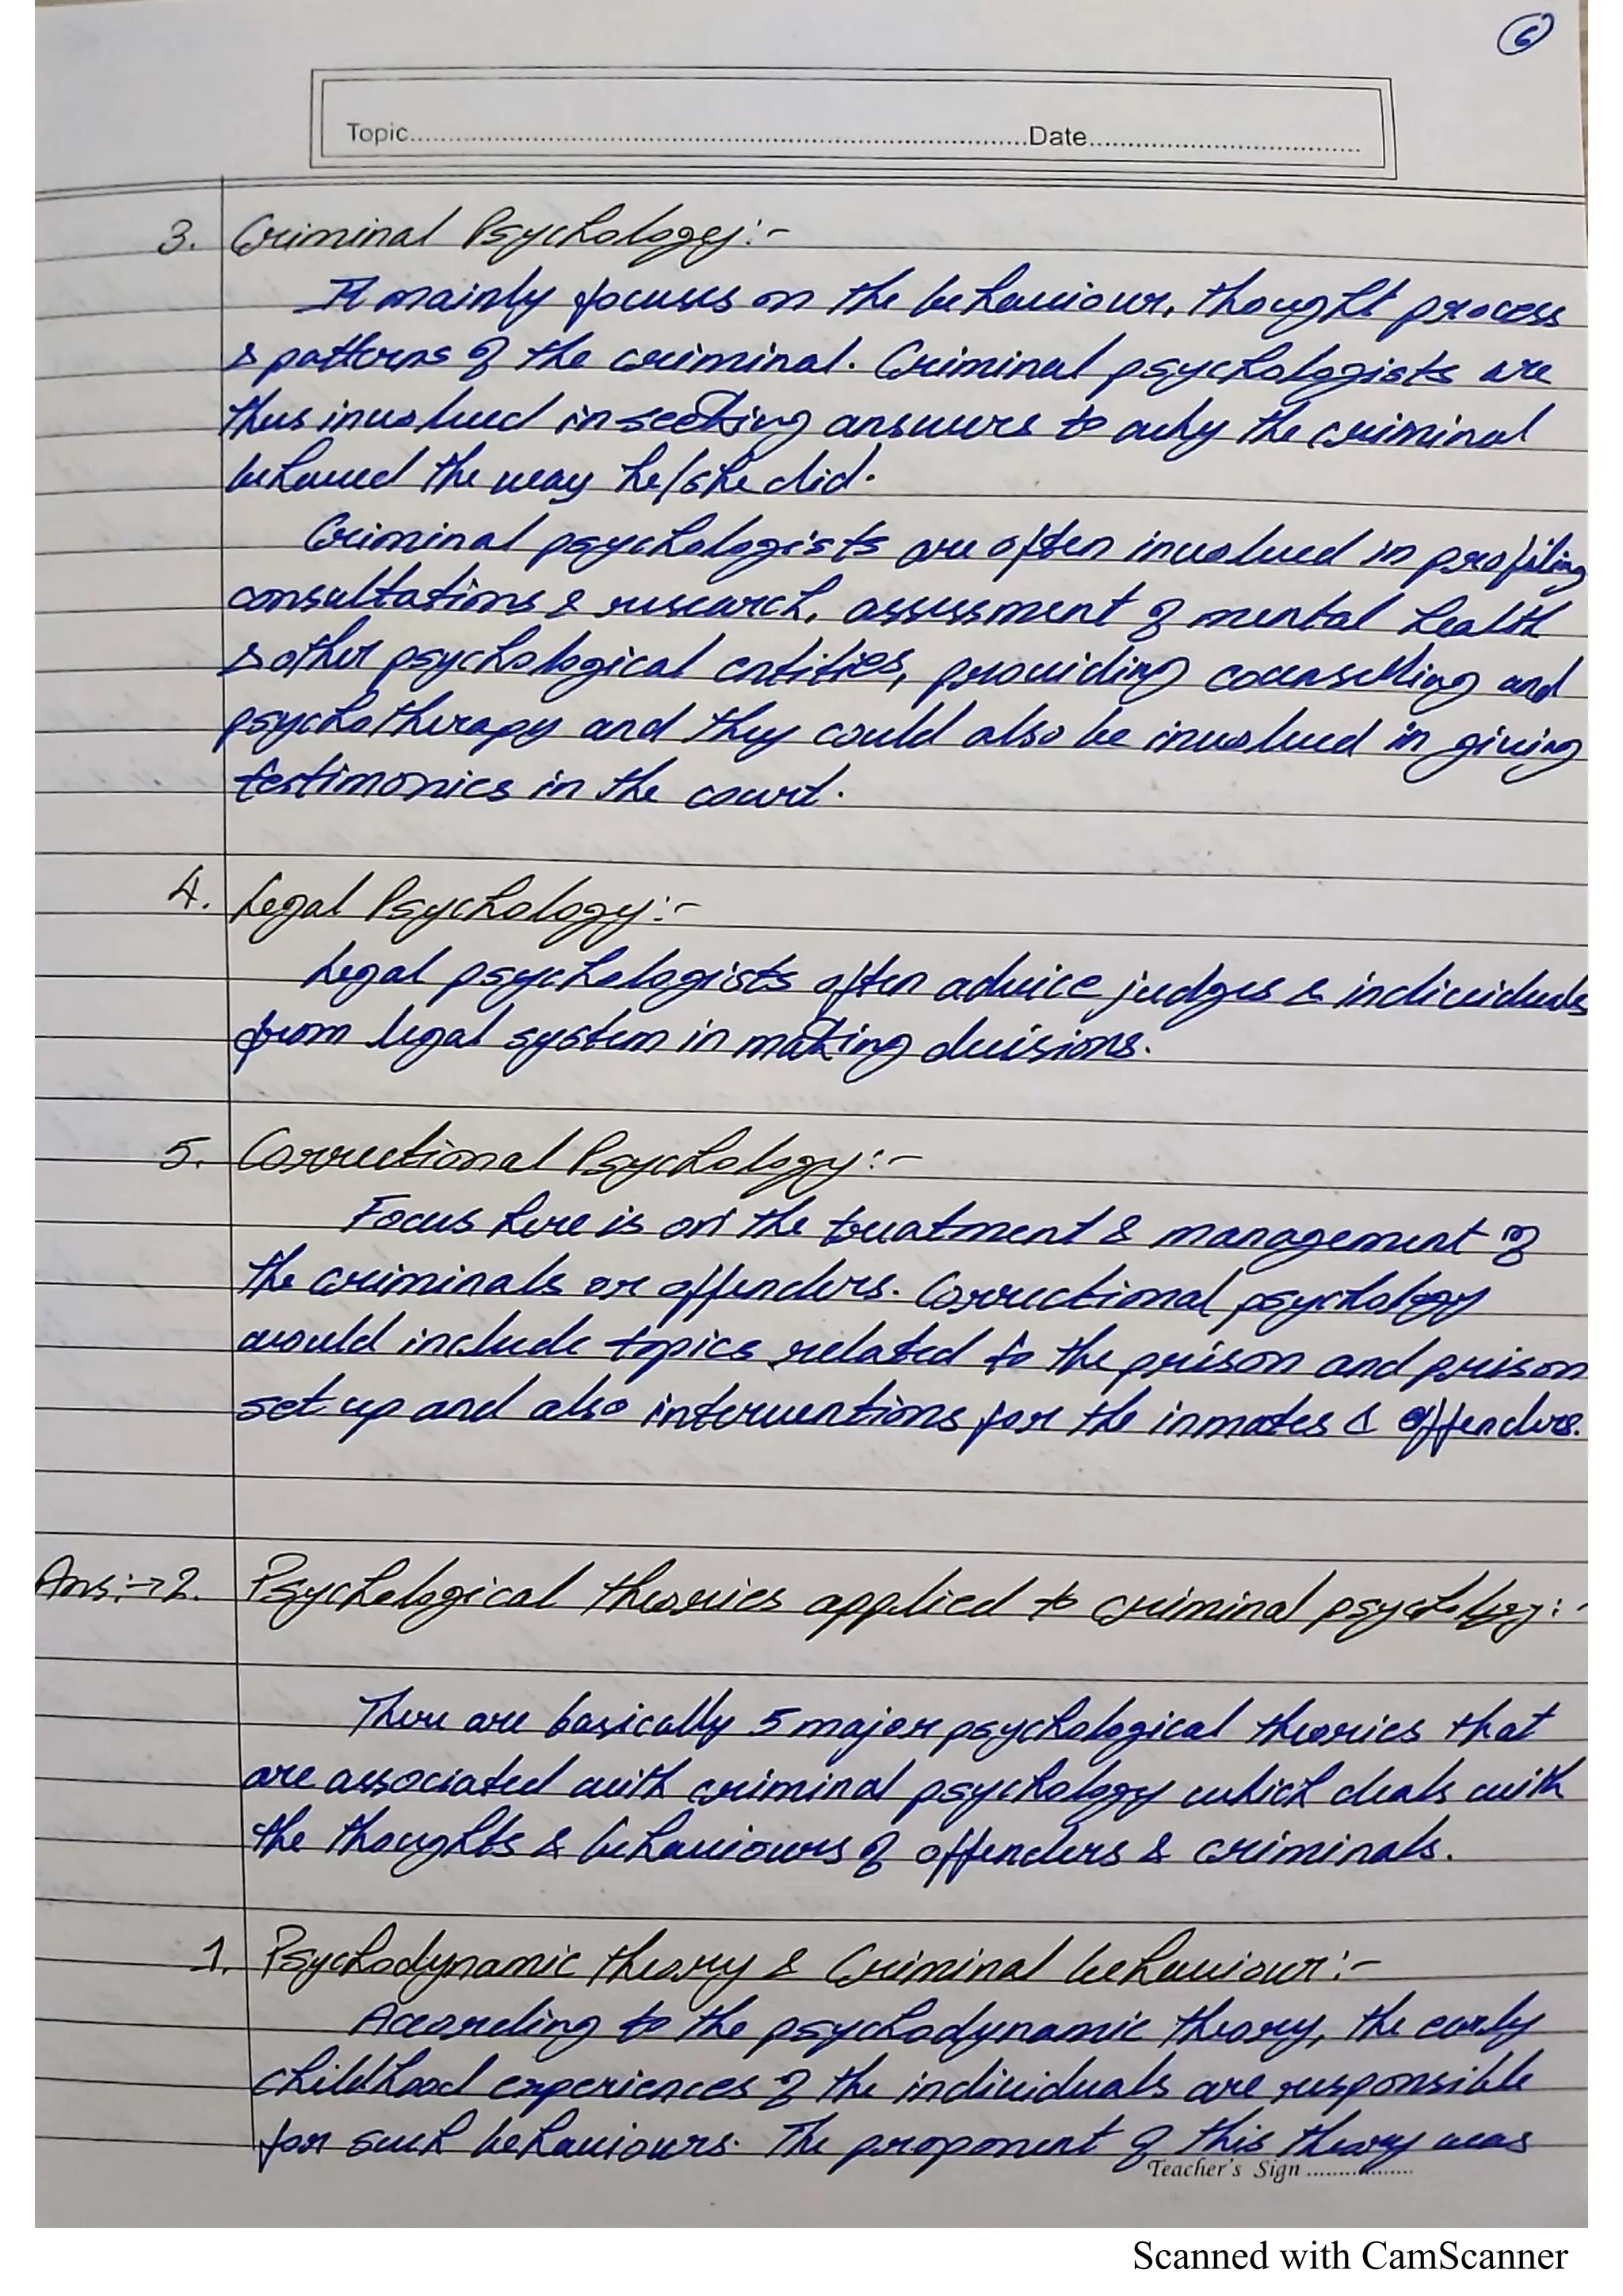 6
Topic..........Date..........
3. Criminal Psychology:-
It mainly focuses on the behaviour, thought process
& patterns of the criminal. Criminal psychologists are
thus involved in seeking answers to why the criminal
behaved the way he/she did.
Criminal psychologists are often involved in profiling
consultations & research, assessment of mental health
& other psychological entities, providing counselling and
psychotherapy and they could also be involved in giving
testimonies in the court.
4. Legal Psychology:-
Legal psychologists often advice judges & individuals
from legal system in making decisions.
5. Correctional Psychology:-
Focus here is on the treatment & management of
the criminals or offenders. Correctional psychology
would include topics related to the prison and prison
set up and also interventions for the inmates & offenders.
Ans:→2. Psychological theories applied to criminal psychology:-
There are basically 5 major psychological theories that
are associated with criminal psychology which deals with
the thoughts & behaviours of offenders & criminals.
1. Psychodynamic theory & Criminal behaviour:-
According to the psychodynamic theory, the early
childhood experiences of the individuals are responsible
for such behaviours. The proponent of this theory was
Teacher's Sign ..........
Scanned with CamScanner